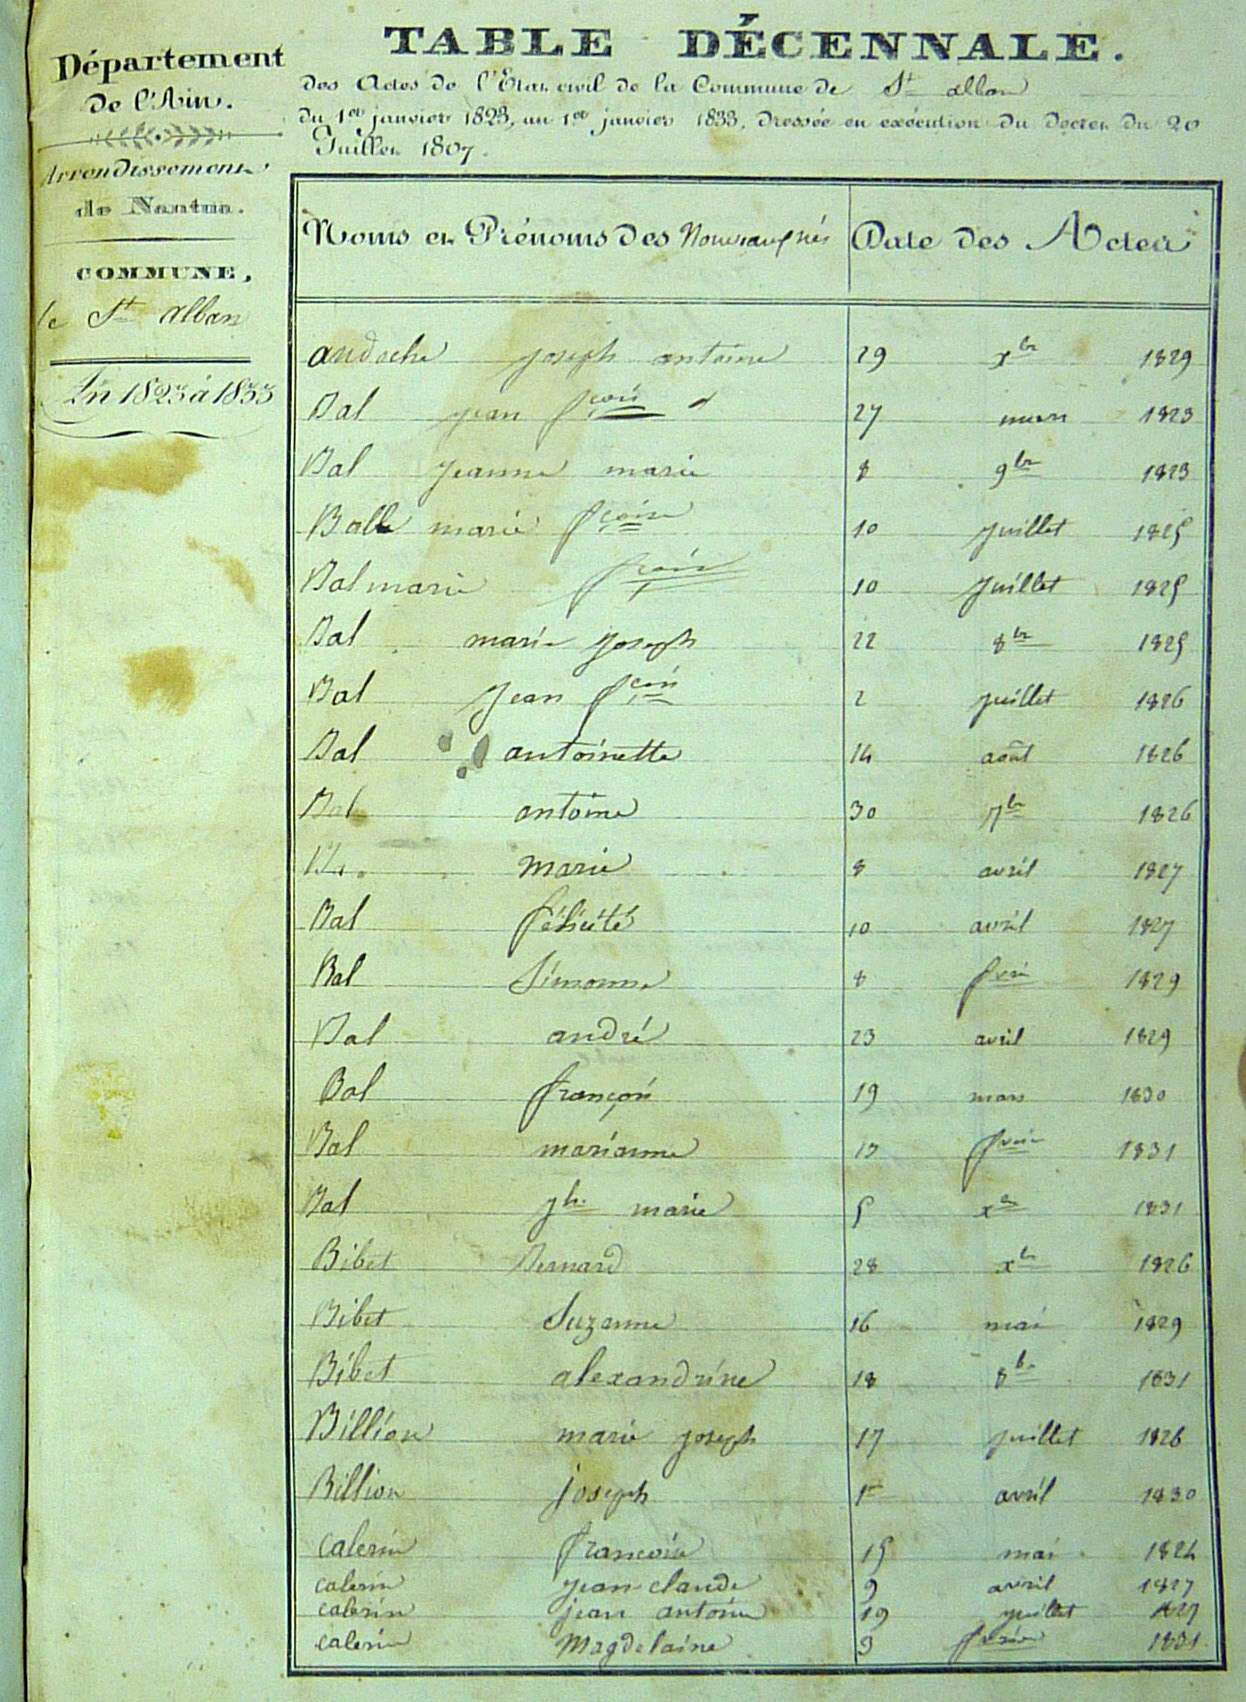 TABLE DÉCENNALE.
des Actes de l'État civil de la Commune de St alban
du 1er janvier 1823, au 1er janvier 1833, dressée en exécution du Decret du 20
Juillet 1807.
Département
de l'Ain.
Arrondissement
de Nantua.
COMMUNE,
de St alban
An 1823 à 1833
Noms et Prénoms des Nouveaux nés Date des Actes
andoche joseph antoine 29 xbre 1829
Bal jean fçois 27 mars 1823
Bal jeanne marie 8 9bre 1823
Balle marie fçoise 10 juillet 1825
Bal marie fçoise 10 juillet 1825
Bal marie joseph 22 8bre 1825
Bal jean fçois 2 juillet 1826
Bal antoinette 14 août 1826
Bal antoine 30 7bre 1826
marie 8 avril 1827
Bal félicité 10 avril 1827
Bal Simonne 8 fvrier 1829
Bal andré 23 avril 1829
Bal françois 19 mars 1830
Bal marianne fvrier 1831
Bal jh marie 5 xbre 1831
Bibet Bernard 28 xbre 1826
Bibet Suzanne 16 mai 1829
Bibet alexandrine 18 8bre 1831
Billion marie joseph 17 juillet 1826
Billion joseph 1er avril 1830
Calerin françoise 15 mai 1824
calerin jean claude 9 avril 1827
calerin jean antoine 19 juillet 1827
calerin Magdelaine 9 fvrier 1831